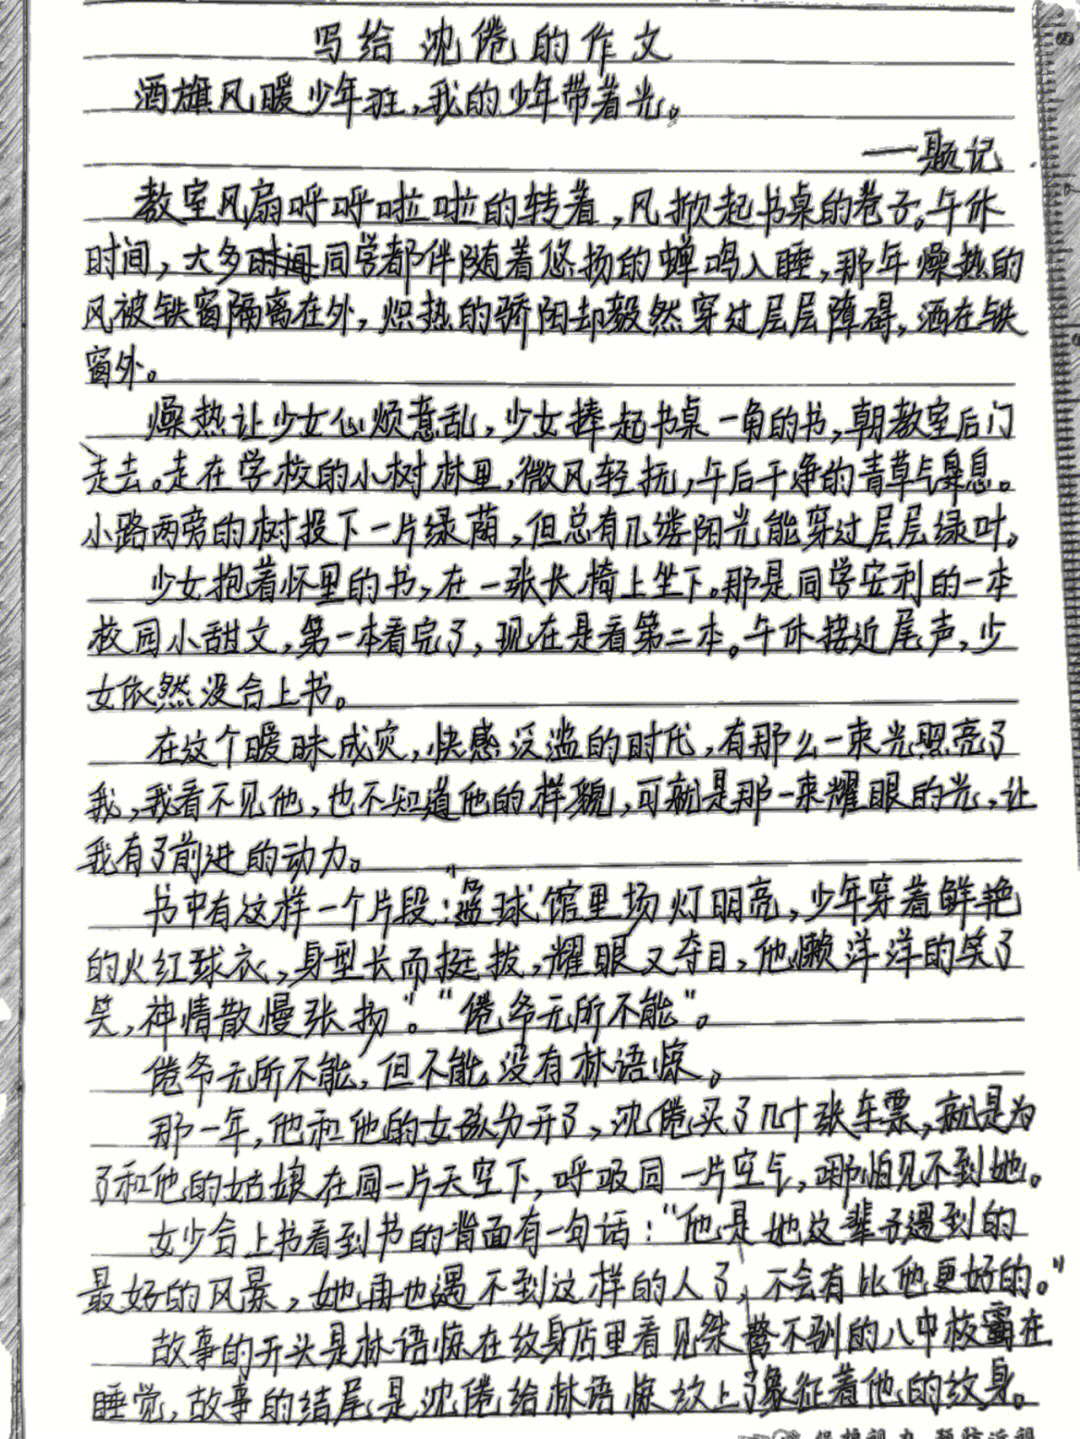 写给沈倦的作文
酒旗风暖少年狂，我的少年带着光。
——题记
教室风扇呼呼啦啦的转着，风掀起书桌的卷子。午休
时间，大多时间同学都伴随着悠扬的蝉鸣入睡，那年燥热的
风被铁窗隔离在外，炽热的骄阳却毅然穿过层层障碍，洒在铁
窗外。
燥热让少女心烦意乱，少女捧起书桌一角的书，朝教室后门
走去。走在学校的小树林里，微风轻抚，午后干净的青草气息。
小路两旁的树投下一片绿荫，但总有几缕阳光能穿过层层绿叶。
少女抱着怀里的书，在一张长椅上坐下。那是同学安利的一本
校园小甜文，第一本看完了，现在是看第二本。午休接近尾声，少
女依然没合上书。
在这个暧昧成灾，快感泛滥的时代，有那么一束光照亮了
我，我看不见他，也不知道他的样貌，可就是那一束耀眼的光，让
我有了前进的动力。
书中有这样一个片段："篮球馆里场灯明亮，少年穿着鲜艳
的火红球衣，身型长而挺拔，耀眼又夺目，他懒洋洋的笑了
笑，神情散慢张扬"。"倦爷无所不能"。
倦爷无所不能，但不能没有林语惊。
那一年，他和他的女孩分开了，沈倦买了几十张车票，就是为
了和他的姑娘在同一片天空下，呼吸同一片空气，哪怕见不到她。
女少合上书看到书的背面有一句话："他是她这辈子遇到的
最好的风景，她再也遇不到这样的人了，不会有比他更好的。"
故事的开头是林语惊在纹身店里看见桀骜不驯的八中校霸在
睡觉，故事的结尾是沈倦给林语惊纹上了象征着他的纹身。
保护视力 预防近视